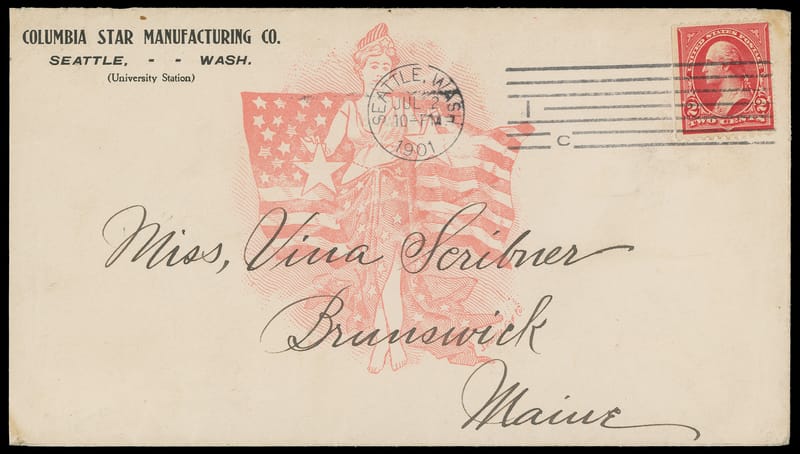 COLUMBIA STAR MANUFACTURING CO.
SEATTLE, - - WASH.
(University Station)
SEATTLE, WASH.
JUL 2
10-PM
1901
1
C
UNITED STATES POSTAGE
2 2
TWO CENTS
Miss, Vina Scribner
Brunswick
Maine